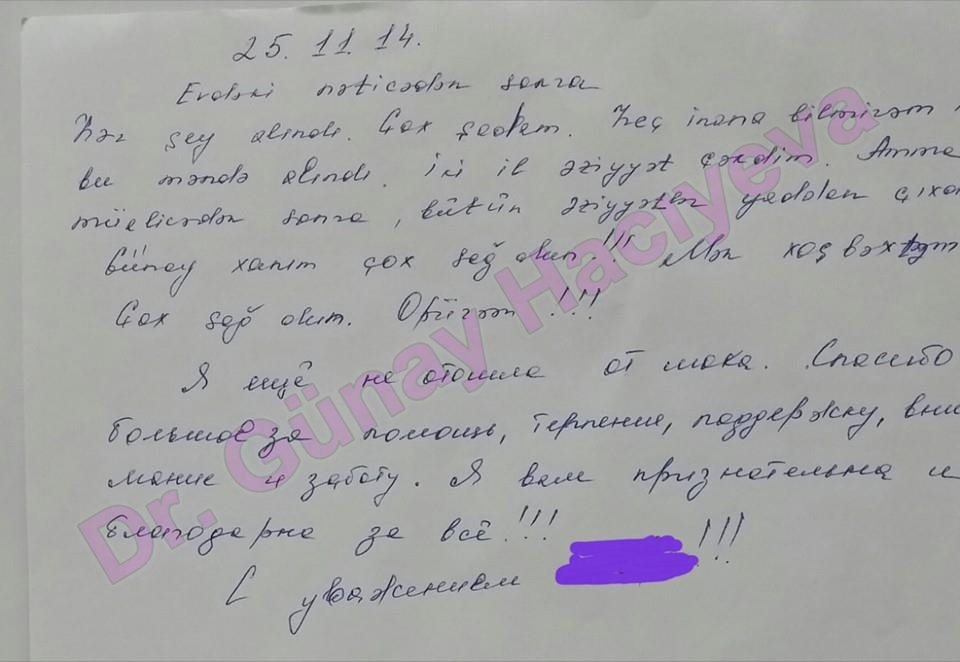 25. 11. 14.
Evdəki nəticədən sonra
Hər şey alındı. Çox şadam. Heç inana bilmirəm
bu məndə alındı. İki il əziyyət çəkdim. Amma
müalicədən sonra, bütün əziyyətlər yaddan çıxar
Günay xanım çox sağ olun!!! Mən xoşbəxtəm
Çox sağ olun. Öpürəm!!!
Я ещё не отошла от шока. Спасибо
большое за помощь, терпение, поддержку, вни
мание и заботу. Я вам признательна и
благодарна за всё!!!
С уважением !!!
Dr. Günay Hacıyeva